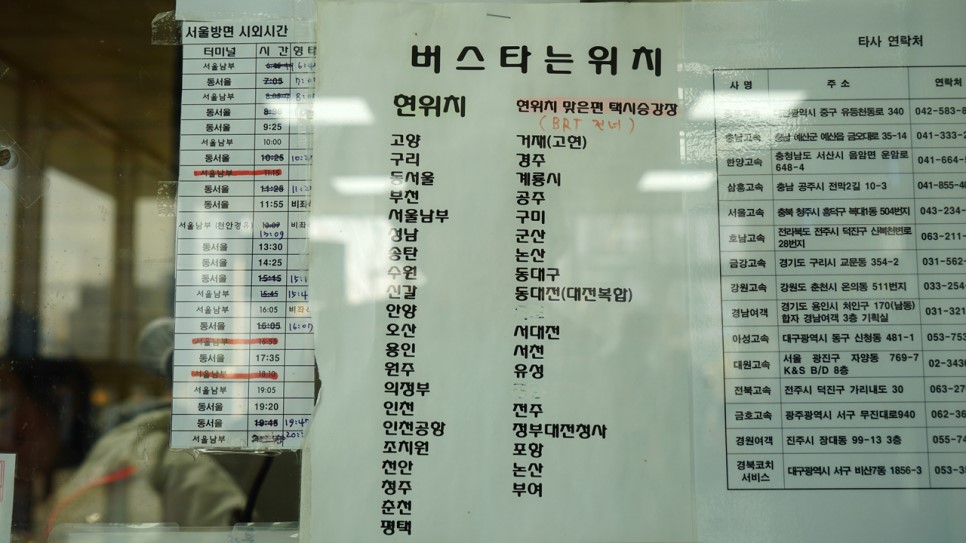 서울방면 시외시간
터미널 시 간
서울남부
동서울 7:05
서울남부
동서울
동서울 9:25
서울남부 10:00
동서울 10:25
서울남부 11:15
동서울 11:25
동서울 11:55
서울남부 (천안경유) 13:09
동서울 13:30
동서울 14:25
동서울 15:45
서울남부 15:45
서울남부 16:05
동서울 16:05 16:07
서울남부
동서울 17:35
서울남부 18:10
서울남부 19:05
동서울 19:20
동서울 19:45 19:47
서울남부
버스타는위치
현위치
고양
구리
동서울
부천
서울남부
성남
송탄
수원
신갈
안양
오산
용인
원주
의정부
인천
인천공항
조치원
천안
청주
춘천
평택
현위치 맞은편 택시승강장
(BRT 건너)
거제(고연)
경주
계룡시
공주
구미
군산
논산
동대구
동대전(대전복합)
서대전
서천
유성
전주
정부대전청사
포항
논산
부여
타사 연락처
사 명 주 소 연락처
중구 유등천동로 340 042-583-8
충남고속 충남 예산군 예산읍 금오대로 35-14 041-333-2
한양고속 충청남도 서산시 음암면 운암로 648-4 041-664-
삼흥고속 충남 공주시 전막2길 10-3 041-855-40
서울고속 충북 청주시 흥덕구 복대1동 504번지 043-234-
호남고속 전라북도 전주시 덕진구 신복천변로 28번지 063-211-
금강고속 경기도 구리시 교문동 354-2 031-562-
강원고속 강원도 춘천시 온의동 511번지 033-254-
경남여객 경기도 용인시 처인구 170(남동) 합자 경남여객 3층 기획실 031-321
아성고속 대구광역시 동구 신형동 481-1 053-753
대원고속 서울 광진구 자양동 769-7 K&S B/D 8층 02-3436
전북고속 전주시 덕진구 가리내도 30 063-27
금호고속 광주광역시 서구 무진대로940 062-36
경원여객 진주시 장대동 99-13 3층 055-74
경북코치서비스 대구광역시 서구 비산7동 1856-3 053-3